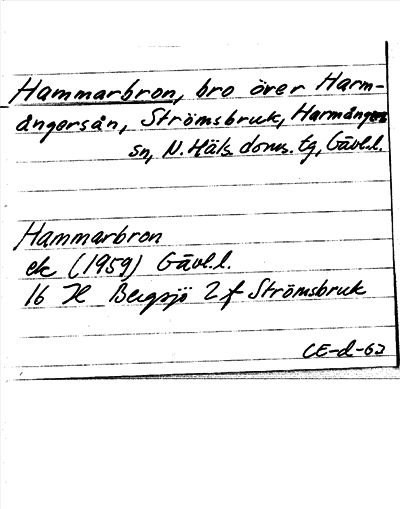 Hammarbron, bro över Harm-
ångersån, Strömsbruk, Harmångers
sn, N. Häls. doms. tg, Gävl.l.
Hammarbron
ek (1959) Gävl.l.
16 H Bergsjö 2 f Strömsbruk
CE-d-63